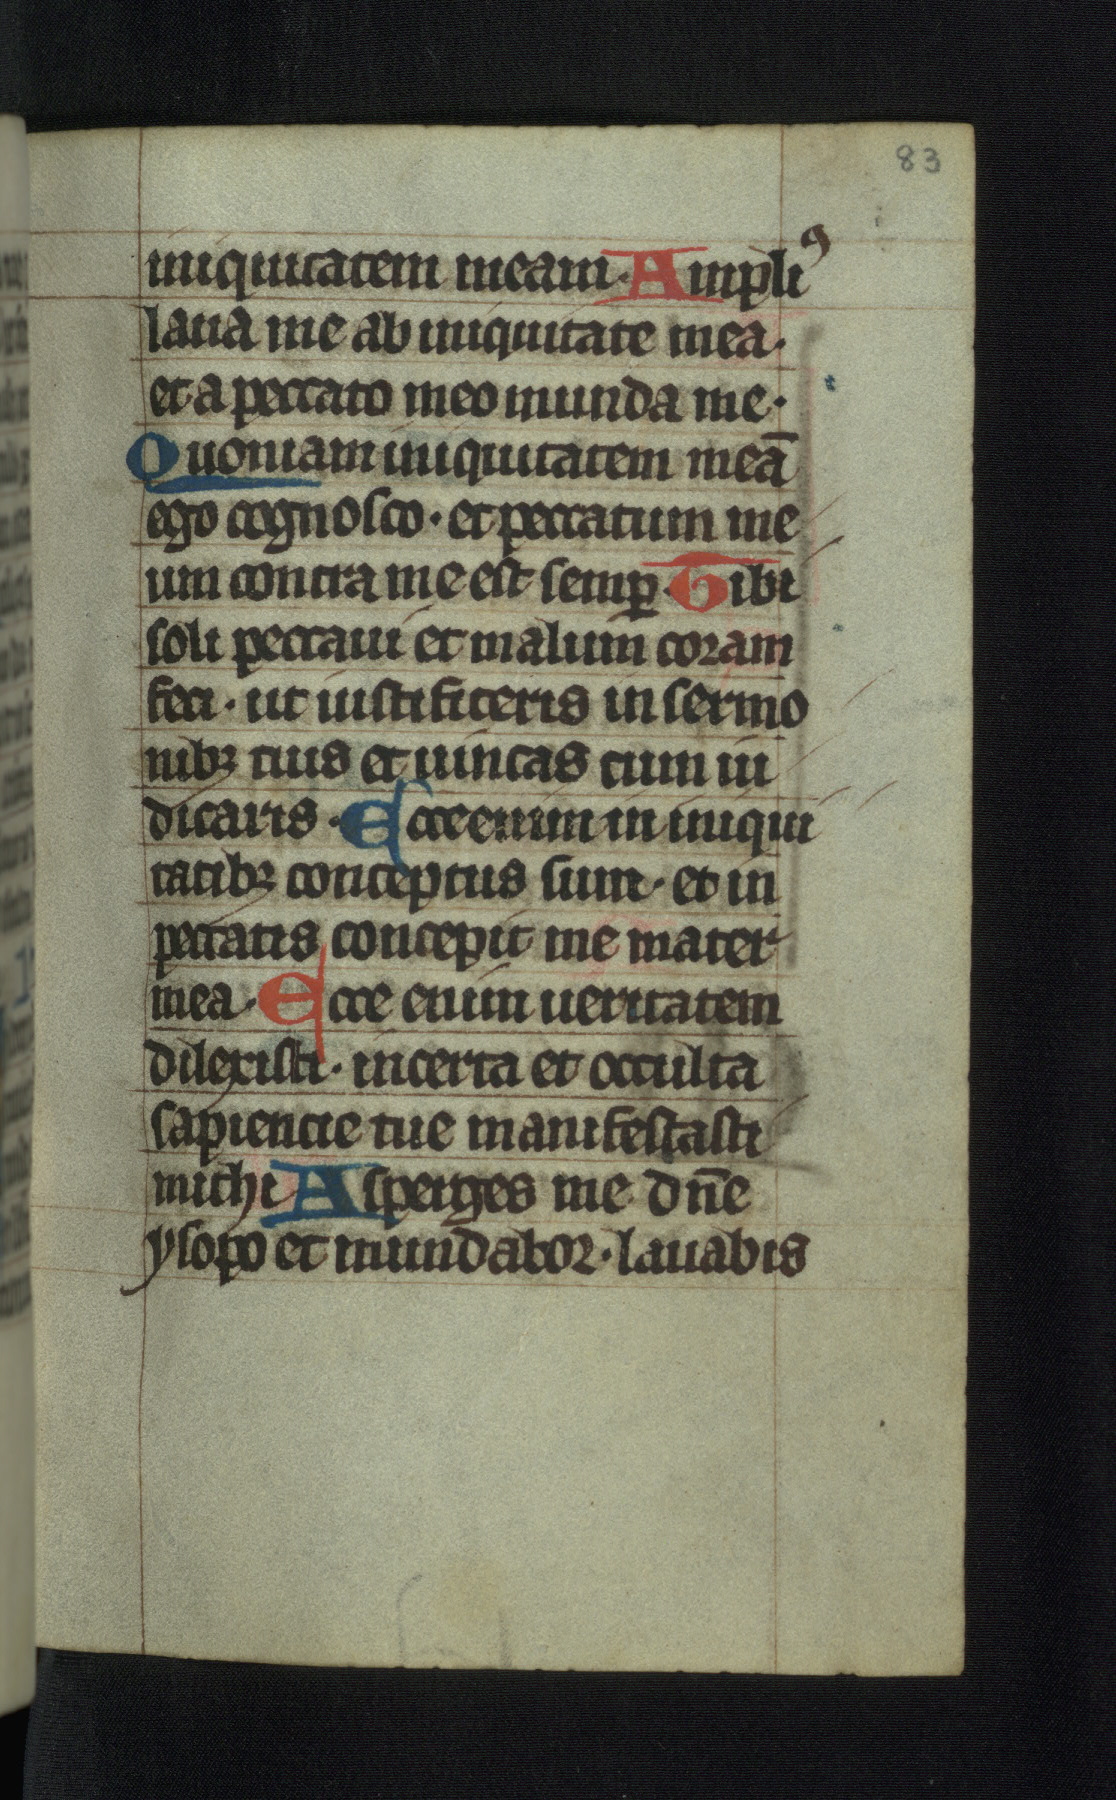 83
iniquitatem meam. Ampliꝰ
laua me ab iniquitate mea.
et a peccato meo munda me.
Quoniam iniquitatem meā
ego cognosco. et peccatum me
um contra me est semꝑ. Tibi
soli peccaui et malum coram
feci. ut iustificeris in sermo
nibꝫ tuis et uincas cum iu
dicaris. Ecce enim in iniqui
tatibꝫ conceptus sum. et in
peccatis concepit me mater
mea. Ecce enim ueritatem
dilexisti. incerta et occulta
sapiencie tue manifestasti
michi Asperges me dn̄e
ysopo et mundabor. lauabis